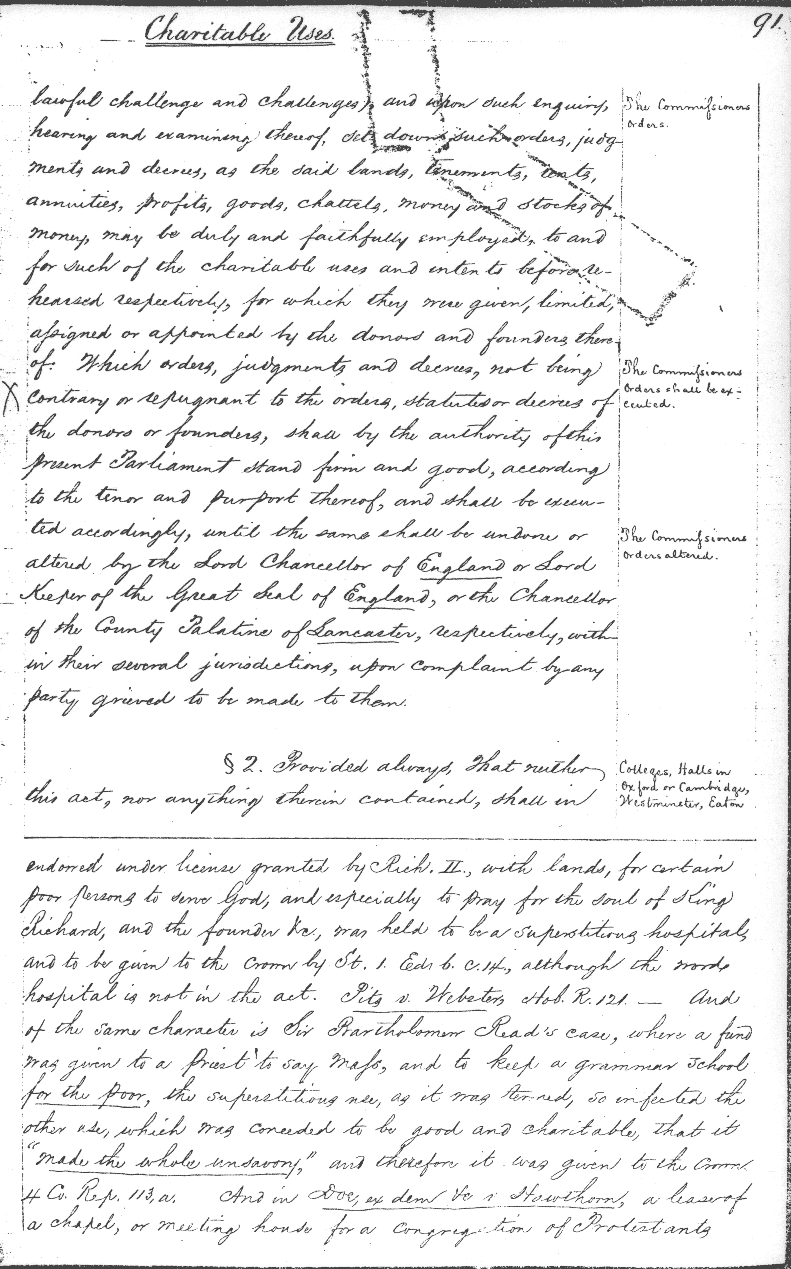 Charitable Uses.
91.
lawful challenge and challenges), and upon such enquiry,
hearing and examining thereof, set down such orders, judg-
ments and decrees, as the said lands, tenements, rents,
annuities, profits, goods, chattels, money and stocks of
money, may be duly and faithfully employed, to and
for such of the charitable uses and intents before re-
hearsed respectively, for which they were given, limited,
assigned or appointed by the donors and founders there
of. Which orders, judgments and decrees, not being
contrary or repugnant to the orders, statutes or decrees of
the donors or founders, shall by the authority of this
present Parliament stand firm and good, according
to the tenor and purport thereof, and shall be execu-
ted accordingly, until the same shall be undone or
altered by the Lord Chancellor of England or Lord
Keeper of the Great Seal of England, or the Chancellor
of the County Palatine of Lancaster, respectively, with-
in their several jurisdictions, upon complaint by any
party grieved to be made to them.
The Commissioners
orders.
The Commissioners
Orders shall be ex-
ecuted.
The Commissioners
orders altered.
§ 2. Provided always, that neither
this act, nor anything therein contained, shall in
Colleges, Halls in
Oxford or Cambridge,
Westminster, Eaton
endorred under license granted by Rich. II., with lands, for certain
poor persons to serve God, and especially to pray for the soul of King
Richard, and the founder &c, was held to be a superstitious hospital,
and to be given to the Crown by St. 1. Ed. 6. c. 14., although the words
hospital is not in the act. Pits v. Webster, Hob. R. 121. — And
of the same character is Sir Bartholomew Read's case, where a fund
was given to a Priest to say Mass, and to keep a grammar School
for the poor, the superstitious use, as it was termed, so infected the
other use, which was conceded to be good and charitable, that it
"made the whole unsavory," and therefore it was given to the Crown
4 Co. Rep. 113, a. And in Doe, ex dem &c v Hawthorn, a lease of
a chapel, or meeting house for a congregation of Protestants